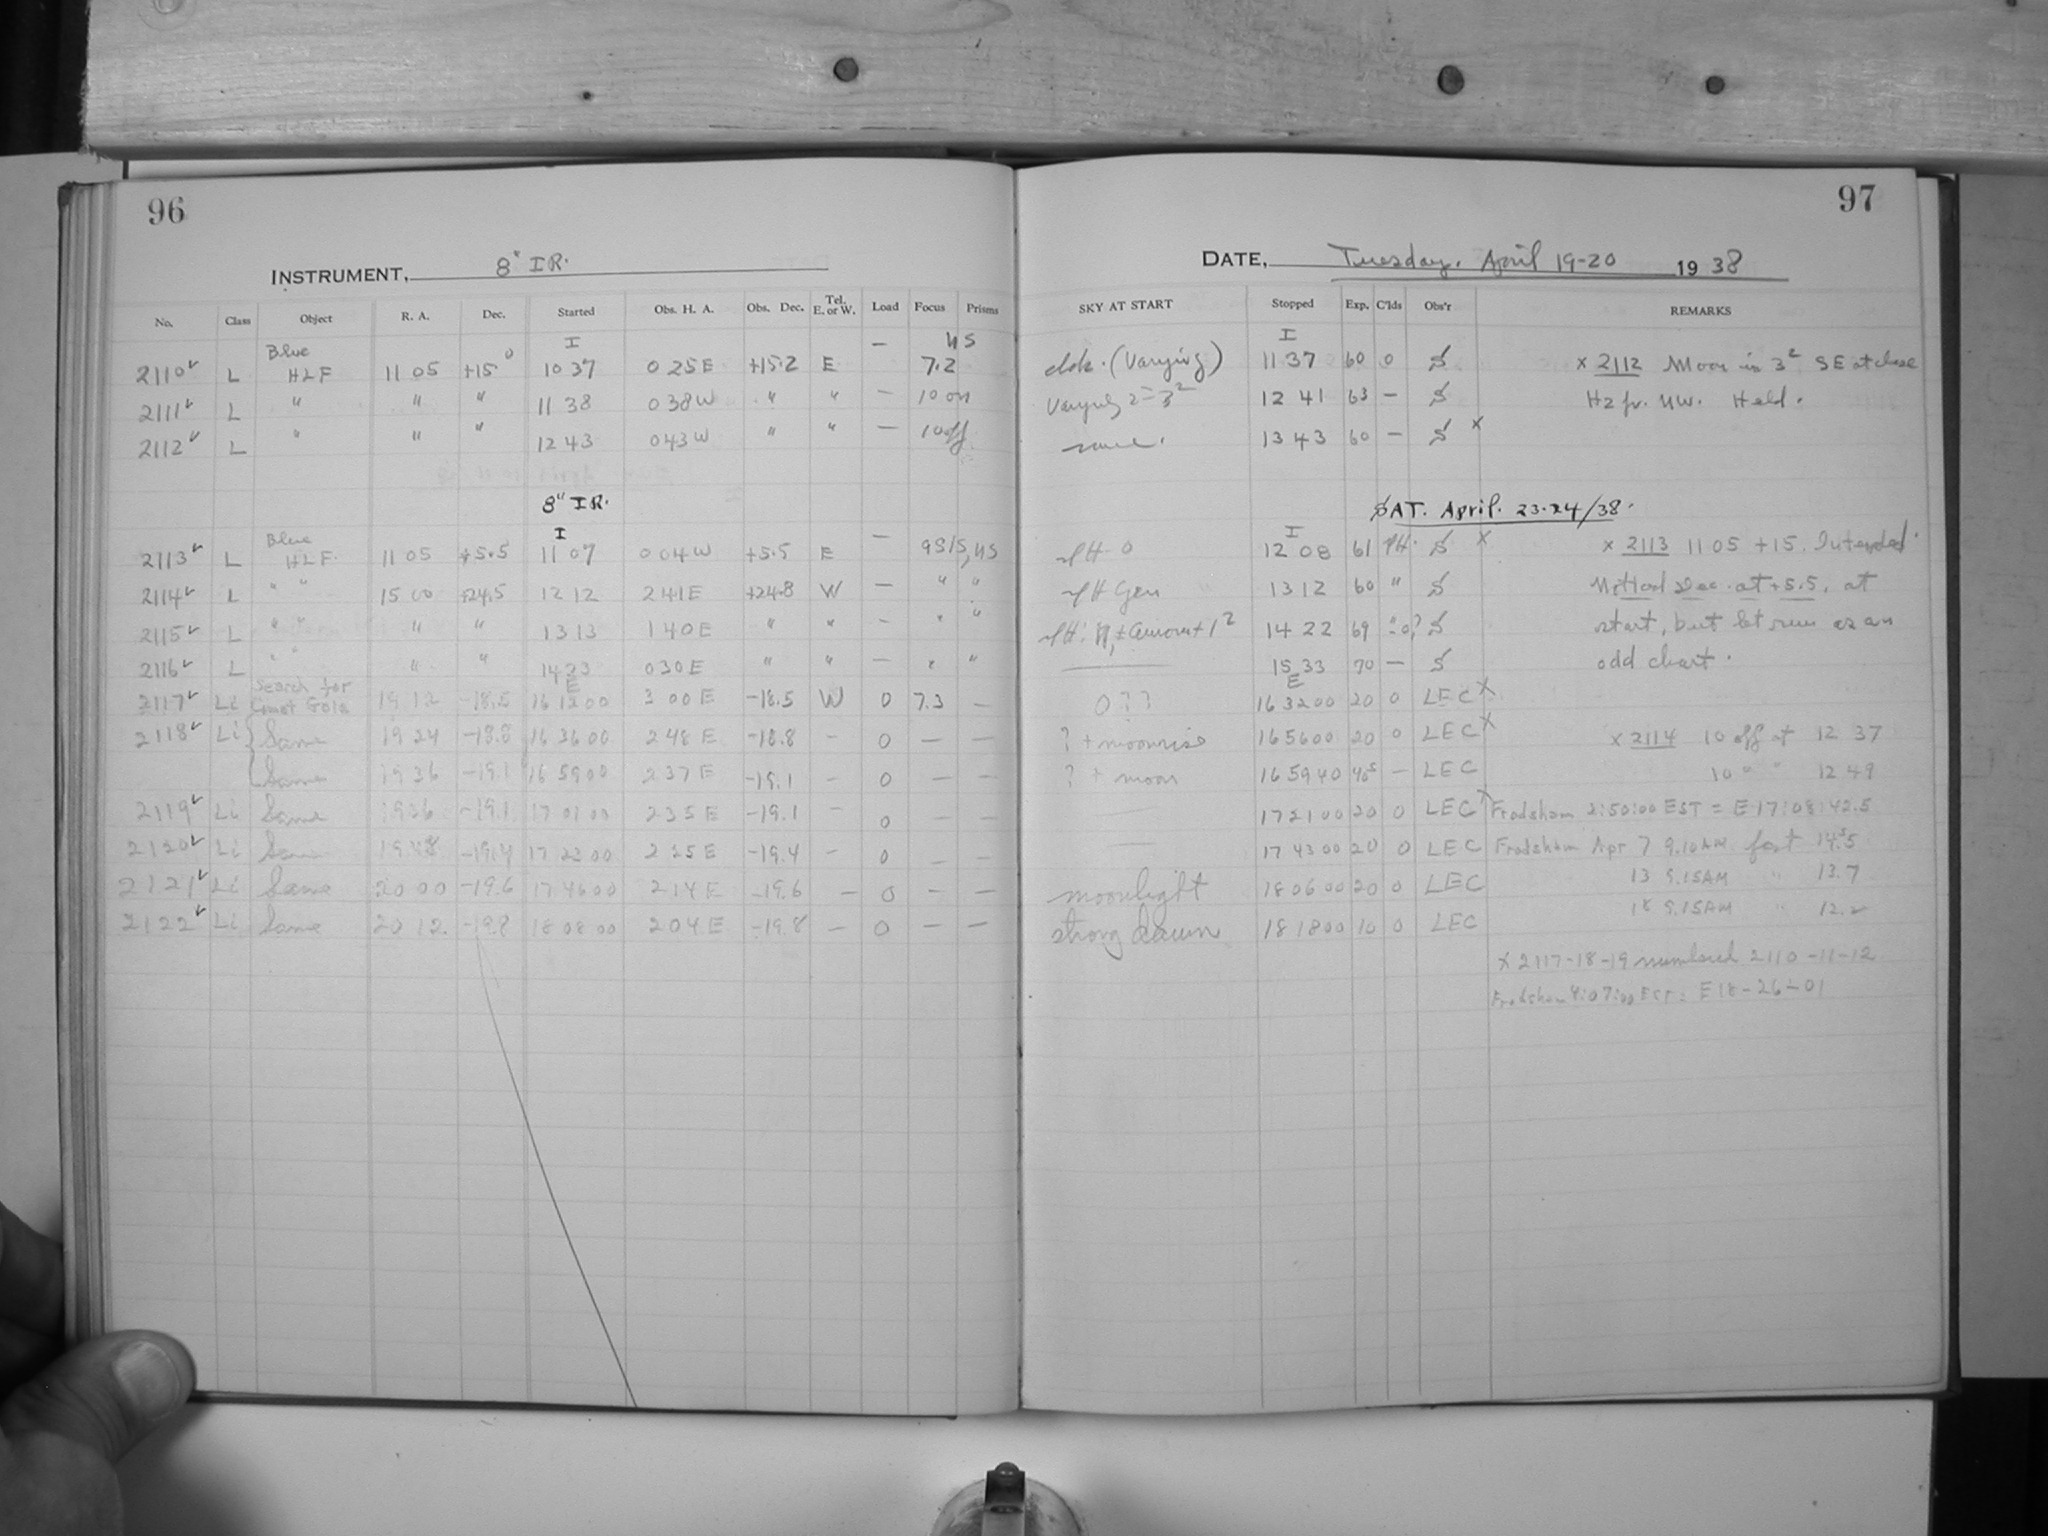 96
INSTRUMENT, 8" IR.
No. Class Object R. A. Dec. Started Obs. H. A. Obs. Dec. Tel. E. or W. Load Focus Prisms
I
2110 ✓ L Blue HLF 11 05 +15° 10 37 0 25 E +15.2 E — 7.2
2111 ✓ L " " " 11 38 0 38 W " " — 10 on
2112 ✓ L " " " 12 43 0 43 W " " — 10 off
8" IR.
I
2113 ✓ L Blue HLF. 11 05 +5.5 11 07 0 04 W +5.5 E —
2114 ✓ L " " 15 00 +24.5 12 12 2 41 E +24.8 W — " "
2115 ✓ L " " " " 13 13 1 40 E " " — " "
2116 ✓ L " " " " 14 23 0 30 E " " — " "
E
2117 ✓ Li Search for Comet Gale 19 12 -18.5 16 12 00 3 00 E -18.5 W 0 7.3 —
2118 ✓ Li Same 19 24 -18.8 16 36 00 2 48 E -18.8 - 0 — —
Same 19 36 -19.1 16 59 00 2 37 E -19.1 - 0 — —
2119 ✓ Li Same 19 36 -19.1 17 01 00 2 35 E -19.1 - 0 — —
2120 ✓ Li Same 19 48 -19.4 17 23 00 2 25 E -19.4 - 0 — —
2121 ✓ Li Same 20 00 -19.6 17 46 00 2 14 E -19.6 - 0 — —
2122 ✓ Li Same 20 12 -19.8 18 08 00 2 04 E -19.8 - 0 — —
97
DATE, Tuesday, April 19-20 1938
SKY AT START Stopped Exp. C'lds Obs'r REMARKS
I
(Varying) 11 37 60 0 S x 2112 Moon in 3² SE at close
Varying 2-3² 12 41 63 — S Hz fr. NW. Held.
same. 13 43 60 — S x
SAT. April. 23-24/38.
I
12 08 61 S x x 2113 11 05 +15. Intended
Gen 13 12 60 " S Dec. at +5.5, at
14 22 69 S start, but let run as an
15 33 70 — S odd chart.
E
0?? 16 32 00 20 0 LEC x
? + moonrise 16 56 00 20 0 LEC x x 2114 10 off at 12 37
? + moon 16 59 40 40s — LEC 10 " " 12 49
— 17 21 00 20 0 LEC x Frodsham 3:50:00 EST = E 17:08:42.5
— 17 43 00 20 0 LEC Frodsham Apr 7 9.10 AM fast 14.s5
moonlight 18 06 00 20 0 LEC 13 9.15AM " 13.7
strong dawn 18 18 00 10 0 LEC 18 9.15AM " 12.2
x 2117-18-19 numbered 2110-11-12
Frodsham EST = E 18-26-01